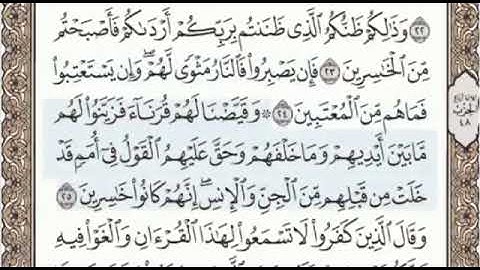 ٢٢ وَذَٰلِكُمْ ظَنُّكُمُ ٱلَّذِى ظَنَنتُم بِرَبِّكُمْ أَرْدَىٰكُمْ فَأَصْبَحْتُم
مِّنَ ٱلْخَٰسِرِينَ ٢٣ فَإِن يَصْبِرُوا۟ فَٱلنَّارُ مَثْوًى لَّهُمْ ۖ وَإِن يَسْتَعْتِبُوا۟
فَمَا هُم مِّنَ ٱلْمُعْتَبِينَ ٢٤ ۞ وَقَيَّضْنَا لَهُمْ قُرَنَآءَ فَزَيَّنُوا۟ لَهُم
مَّا بَيْنَ أَيْدِيهِمْ وَمَا خَلْفَهُمْ وَحَقَّ عَلَيْهِمُ ٱلْقَوْلُ فِىٓ أُمَمٍ قَدْ
خَلَتْ مِن قَبْلِهِم مِّنَ ٱلْجِنِّ وَٱلْإِنسِ ۖ إِنَّهُمْ كَانُوا۟ خَٰسِرِينَ ٢٥
وَقَالَ ٱلَّذِينَ كَفَرُوا۟ لَا تَسْمَعُوا۟ لِهَٰذَا ٱلْقُرْءَانِ وَٱلْغَوْا۟ فِيهِ
الحزب
٤٨